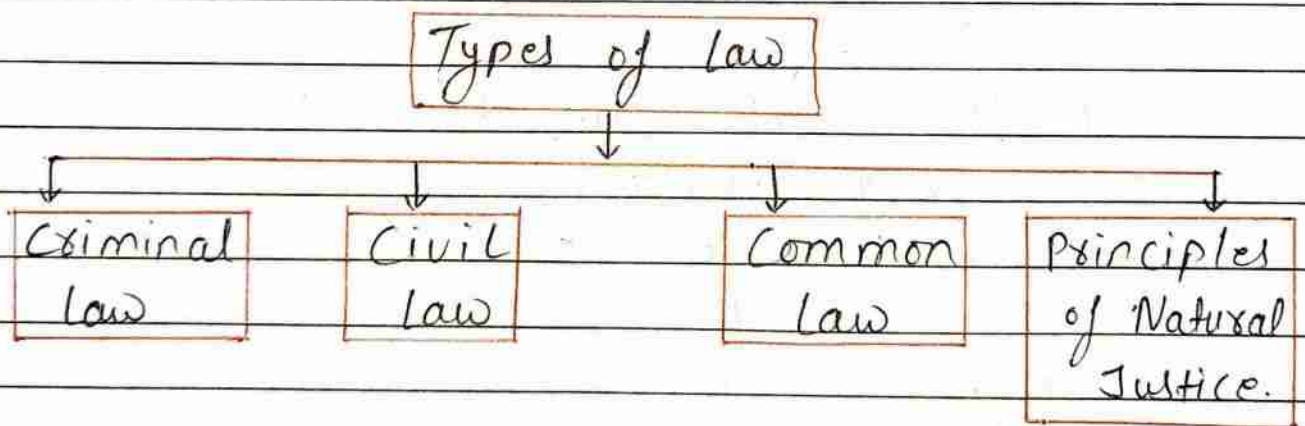 Types of Law
Criminal
Law
Civil
Law
Common
Law
Principles
of Natural
Justice.